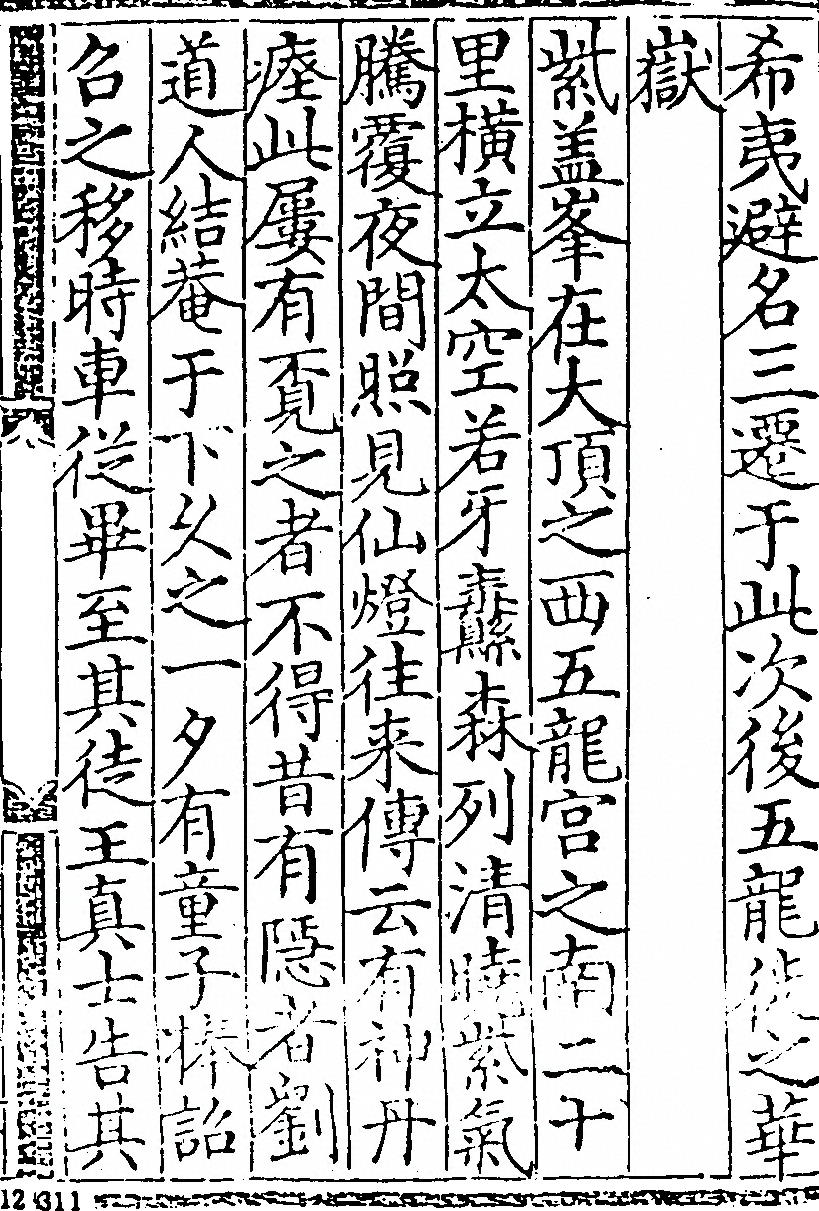 希夷避名三遷于此次後五龍徙之華
嶽
紫盖峯在大頂之西五龍宫之南二十
里橫立太空若牙纛森列清曉紫氣
騰覆夜間照見仙燈往来傳云有神丹
瘞此屢有覔之者不得昔有隱者劉
道人結菴于下久之一夕有童子捧詔
召之移時車從畢至其徒王真士告其
12 311